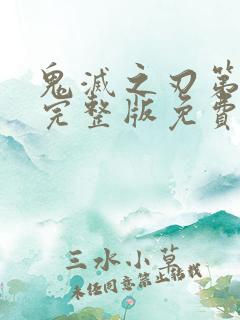 鬼滅之刃第
完整版免費
三水小草
未经同意禁止转载